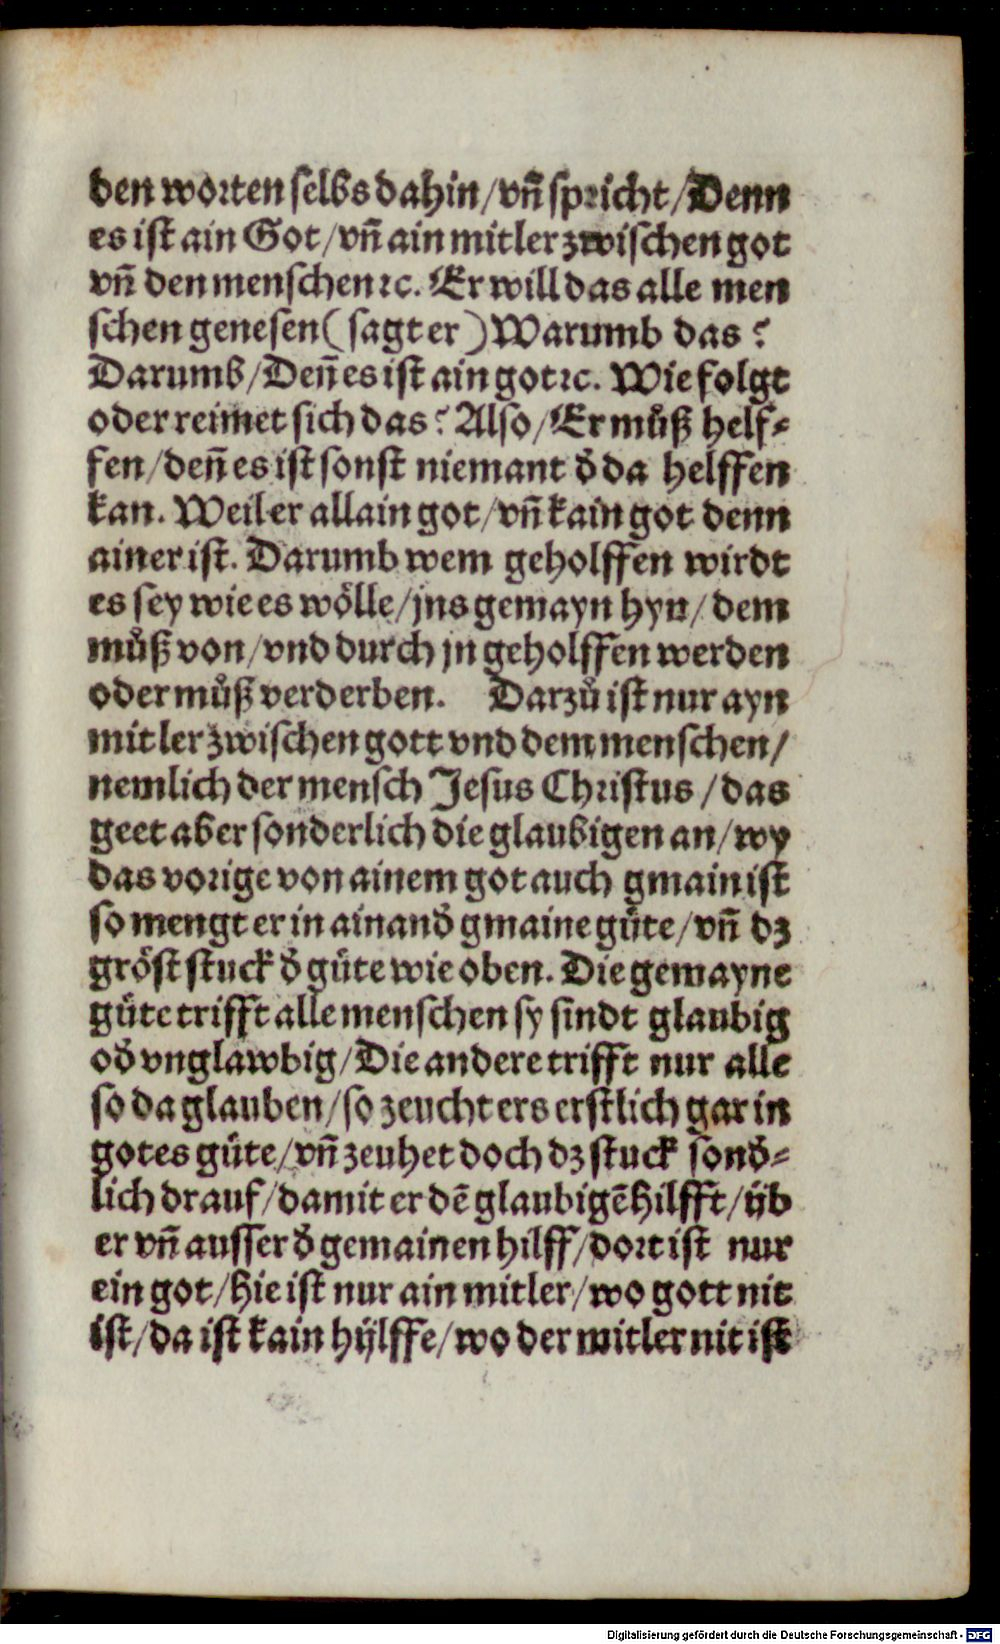 den worten selbs dahin/vn̄ spricht/Denn
es ist ain Got/vn̄ ain mitler zwischen got
vn̄ den menschen ꝛc. Er will das alle men
schen genesen (sagt er) Warumb das?
Darumb/Deñ es ist ain got ꝛc. Wie folgt
oder reimet sich das? Also/Er můß helf⸗
fen/deñ es ist sonst niemant d̄ da helffen
kan. Weil er allain got/vn̄ kain got denn
ainer ist. Darumb wem geholffen wirdt
es sey wie es wölle/jns gemayn hyn/dem
můß von/vnd durch jn geholffen werden
oder můß verderben. Darzů ist nur ayn
mitler zwischen gott vnd dem menschen/
nemlich der mensch Jesus Christus/das
geet aber sonderlich die glaubigen an/wy
das vorige von ainem got auch gmain ist
so mengt er in ainand̄ gmaine güte/vn̄ dz
gröst stuck d̄ güte wie oben. Die gemayne
güte trifft alle menschen sy sindt glaubig
od̄ vnglawbig/Die andere trifft nur alle
so da glauben/so zeucht ers erstlich gar in
gotes güte/vn̄ zeuhet doch dz stuck sond̄⸗
lich drauf/damit er dē glaubigē hilfft/üb
er vn̄ ausser d̄ gemainen hilff/dort ist nur
ein got/hie ist nur ain mitler/wo gott nit
ist/da ist kain hÿlffe/wo der mitler nit ist
Digitalisierung gefördert durch die Deutsche Forschungsgemeinschaft - DFG